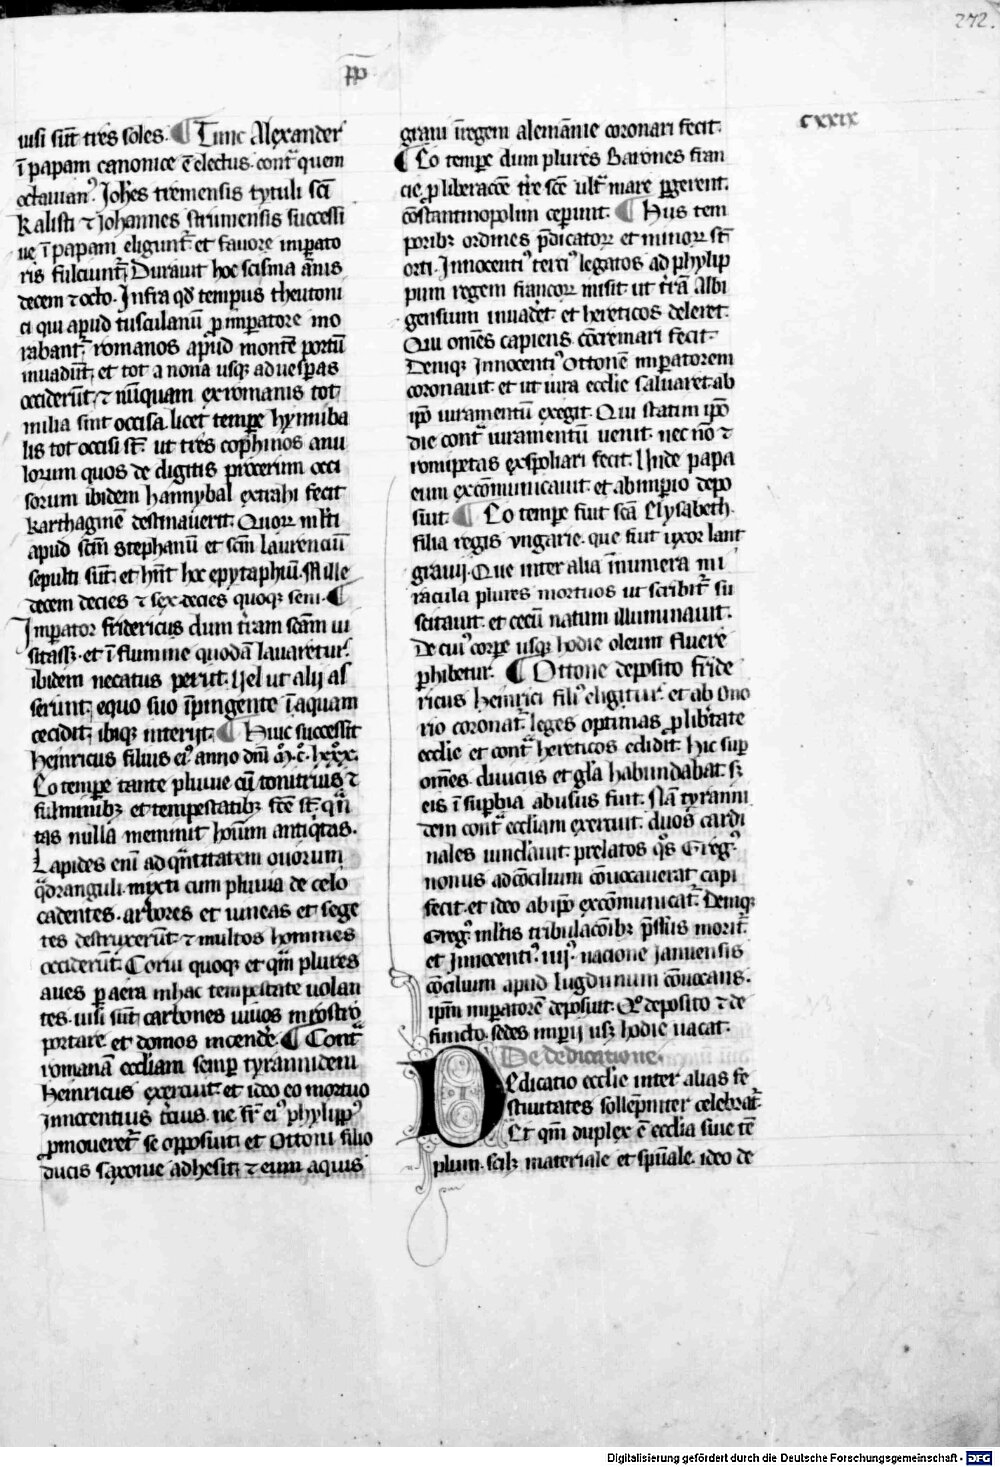 272.
pp
cxxix
uisi sūt tres soles. ¶ Tunc Alexander
ī papam canonice ē electus. contᵃ quem
octauianꝰ. Joh̄es tremensis tytuli sc̄i
Kalisti ⁊ iohannes strumensis successi
ue ī papam eligunt᷑. et fauore imꝑato
ris fulciunt᷑. Durauit hoc scisma ānis
decem ⁊ octo. Infra qd̄ tempus theutoni
ci qui apud tusculanū ꝓ imꝑatore mo
rabant᷑. romanos apud montē portū
inuadūt. et tot a nona usqꝫ ad uesꝑas
occiderūt. ⁊ nūquam ex romanis tot
milia sint occisa. licet temꝑe hymiba
lis tot occisi st̄. ut tres cophinos anu
lorum quos de digitis procerum occi
sorum ibidem hannybal extrahi fecit
karthaginē destinauerit. Quoꝝ ml̄ti
apud sc̄m stephanū et sc̄m laurenciū
sepulti sūt. et hn̄t hoc epytaphiū. Mille
decem decies ⁊ sex decies quoqꝫ seni. ¶
Imꝑator fridericus dum t̄ram sc̄am ui
sitass᷑. et ī flumine quodā lauaretur.
ibidem necatus perijt. Uel ut alij as
serunt. equo suo īpingente ī aquam
cecidit. ibiqꝫ interijt. ¶ Huic successit
heinricus filius eiꝰ anno dn̄i .M̊.c̊.lxxx̊.
Eo tempe tante pluuie cū tonitruis ⁊
fulminibꝫ et tempestatibꝫ fc̄e st̄. qn̄
tas nulla meminit hoīm antiqͥtas.
Lapides eni᷑ ad qn̄titatem ouorum
qᵃdranguli. mixti cum pluuia de celo
cadentes. arbores et uineas et sege
tes destruxerūt. ⁊ multos homines
occiderūt. Corui quoqꝫ et qm̄ plures
aues ꝑ aera in hac tempestate uolan
tes. uisi sūt carbones uiuos in rostro
portare et domos incendē. ¶ Contᵃ
romanā eccl̄iam semꝑ tyrannidem
heinricus exercuit. et ideo eo mortuo
innocentius t̄cius. ne fr̄ eiꝰ phylippꝰ
ꝓmoueret᷑ se opposuit. et Ottoni filio
ducis saxonie adhesit. ⁊ eum aquis
grani ī regem alemānie coronari fecit.
¶ Eo tempe dum plures Barones fran
cie. ꝓ liberacōe t̄re sc̄e ultᵃ mare ꝑgerent.
cōstantinopolim ceꝑunt. ¶ Hijs tem
poribꝫ ordines p̄dicatoꝝ et minoꝝ st̄
orti. Innocentiꝰ terciꝰ legatos ad phylip
pum regem francoꝝ misit. ut t̄rā Albi
gensium inuadet᷑. et hereticos deleret.
Qui om̄es capiens cōcremari fecit.
Deniqꝫ Innocentiꝰ Ottonē imꝑatorem
coronauit. et ut iura eccl̄ie saluaret. ab
ip̄o iuramentū exegit. Qui statim ip̄o
die contᵃ iuramentū uenit. nec nō ⁊
romipetas exspoliari fecit. Unde papa
eum excōmunicauit. et ab imꝑio depo
suit. ¶ Eo tempe fuit sc̄a Elysabeth.
filia regis vngarie. que fuit uxor lant
grauij. Que inter alia īnumera mi
racula plures mortuos ut scribit᷑ su
scitauit. et cecū natum illuminauit.
De cuiꝰ corꝑe usqꝫ hodie oleum fluere
ꝑhibetur. ¶ Ottone deposito fride
ricus heinrici filiꝰ eligitur. et ab Ono
rio coronat᷑. leges optimas ꝓ lib̄tate
eccl̄ie et contᵃ hereticos edidit. Hic suꝑ
om̄es. diuicijs et gl̄a habundabat. sꝫ
eis ī suꝑbia abusus fuit. Nā tyranni
dem contᵃ eccl̄iam exercuit. duos cardi
nales uinclauit. prelatos qͦs Gregꝰ
nonus ad cōcilium cōuocauerat capi
fecit. et ideo ab ip̄o excōmunicat᷑. Deniqꝫ
Gregꝰ ml̄tis tribulacōibꝫ p̄ssus morit᷑.
et Innocentiꝰ. iiijꝰ. nacione ianuensis
cōcilium apud lugdunum cōuocans.
ip̄m imꝑatorē deposuit. Quo deposito ⁊ de
functo. sedes imꝑij usqꝫ hodie uacat.
De dedicatione.
Dedicatio eccl̄ie inter alias fe
stiuitates sollempniter celebrat᷑.
Et qm̄ duplex ē eccl̄ia siue tē
plum. scilꝫ materiale et sp̄uale. ideo de
Digitalisierung gefördert durch die Deutsche Forschungsgemeinschaft - DFG